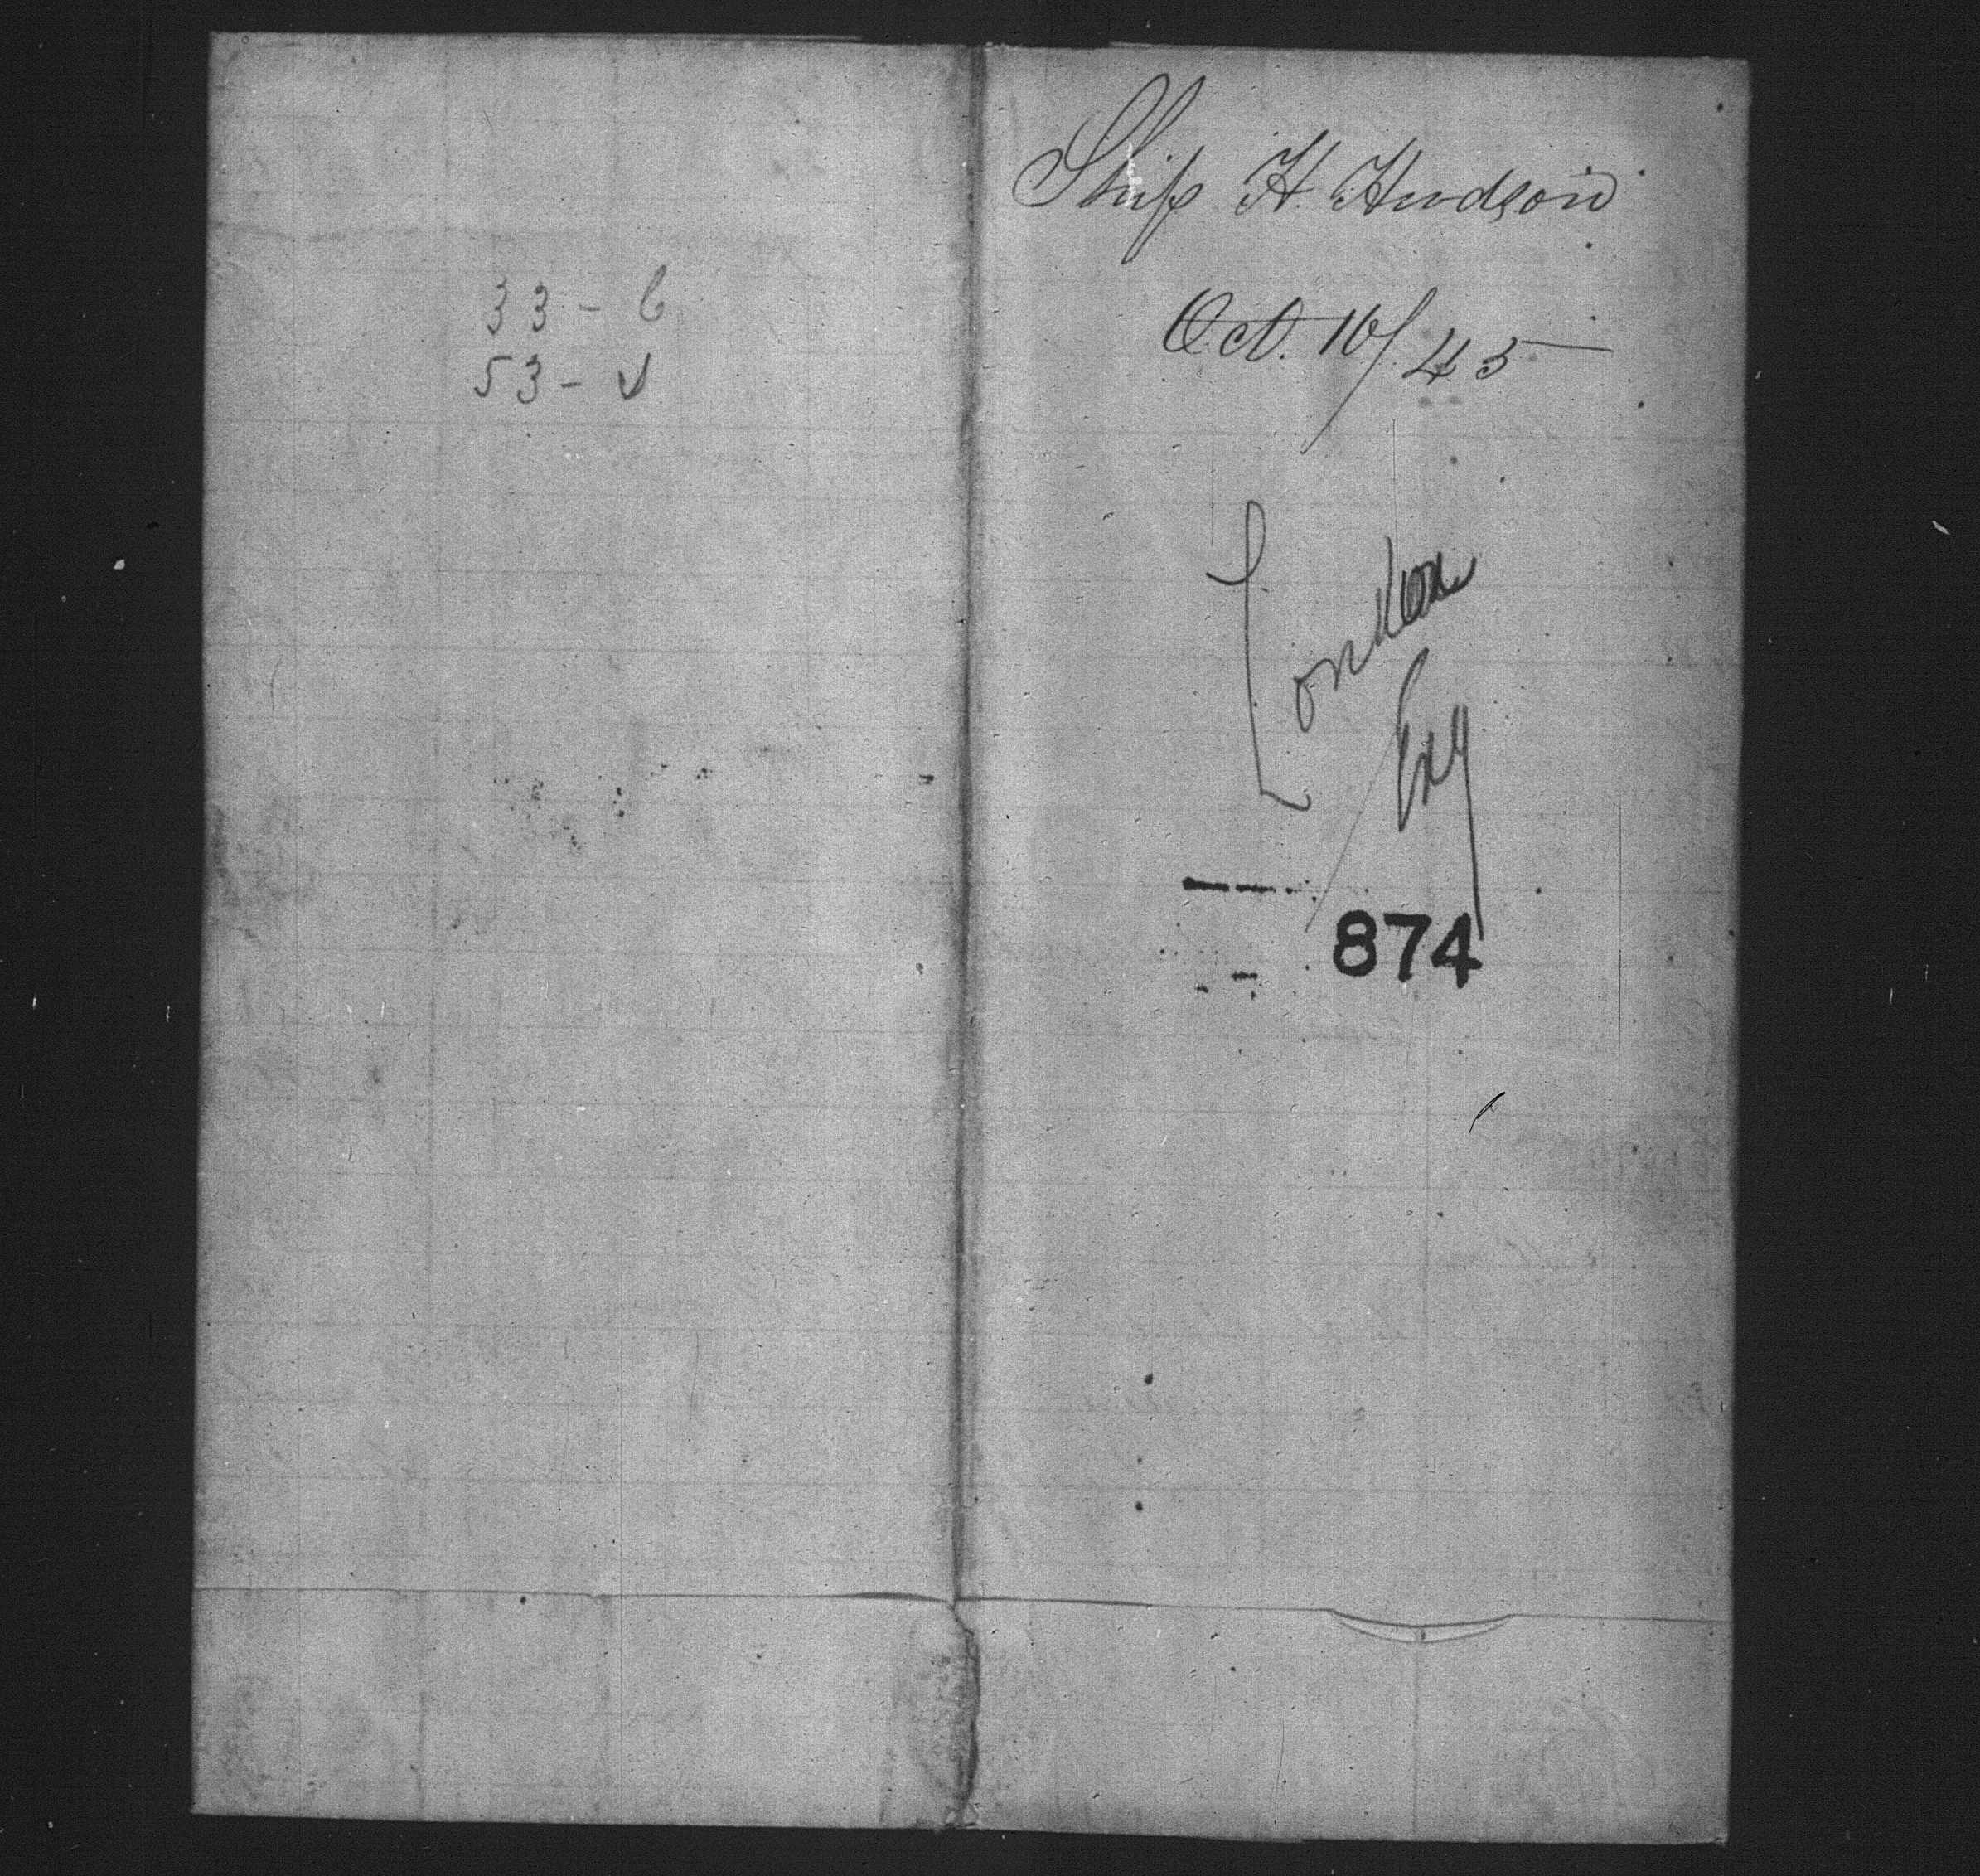 33 - 6
53 - √
Ship H. Hudson
Oct. 16/45
London
Eng
874